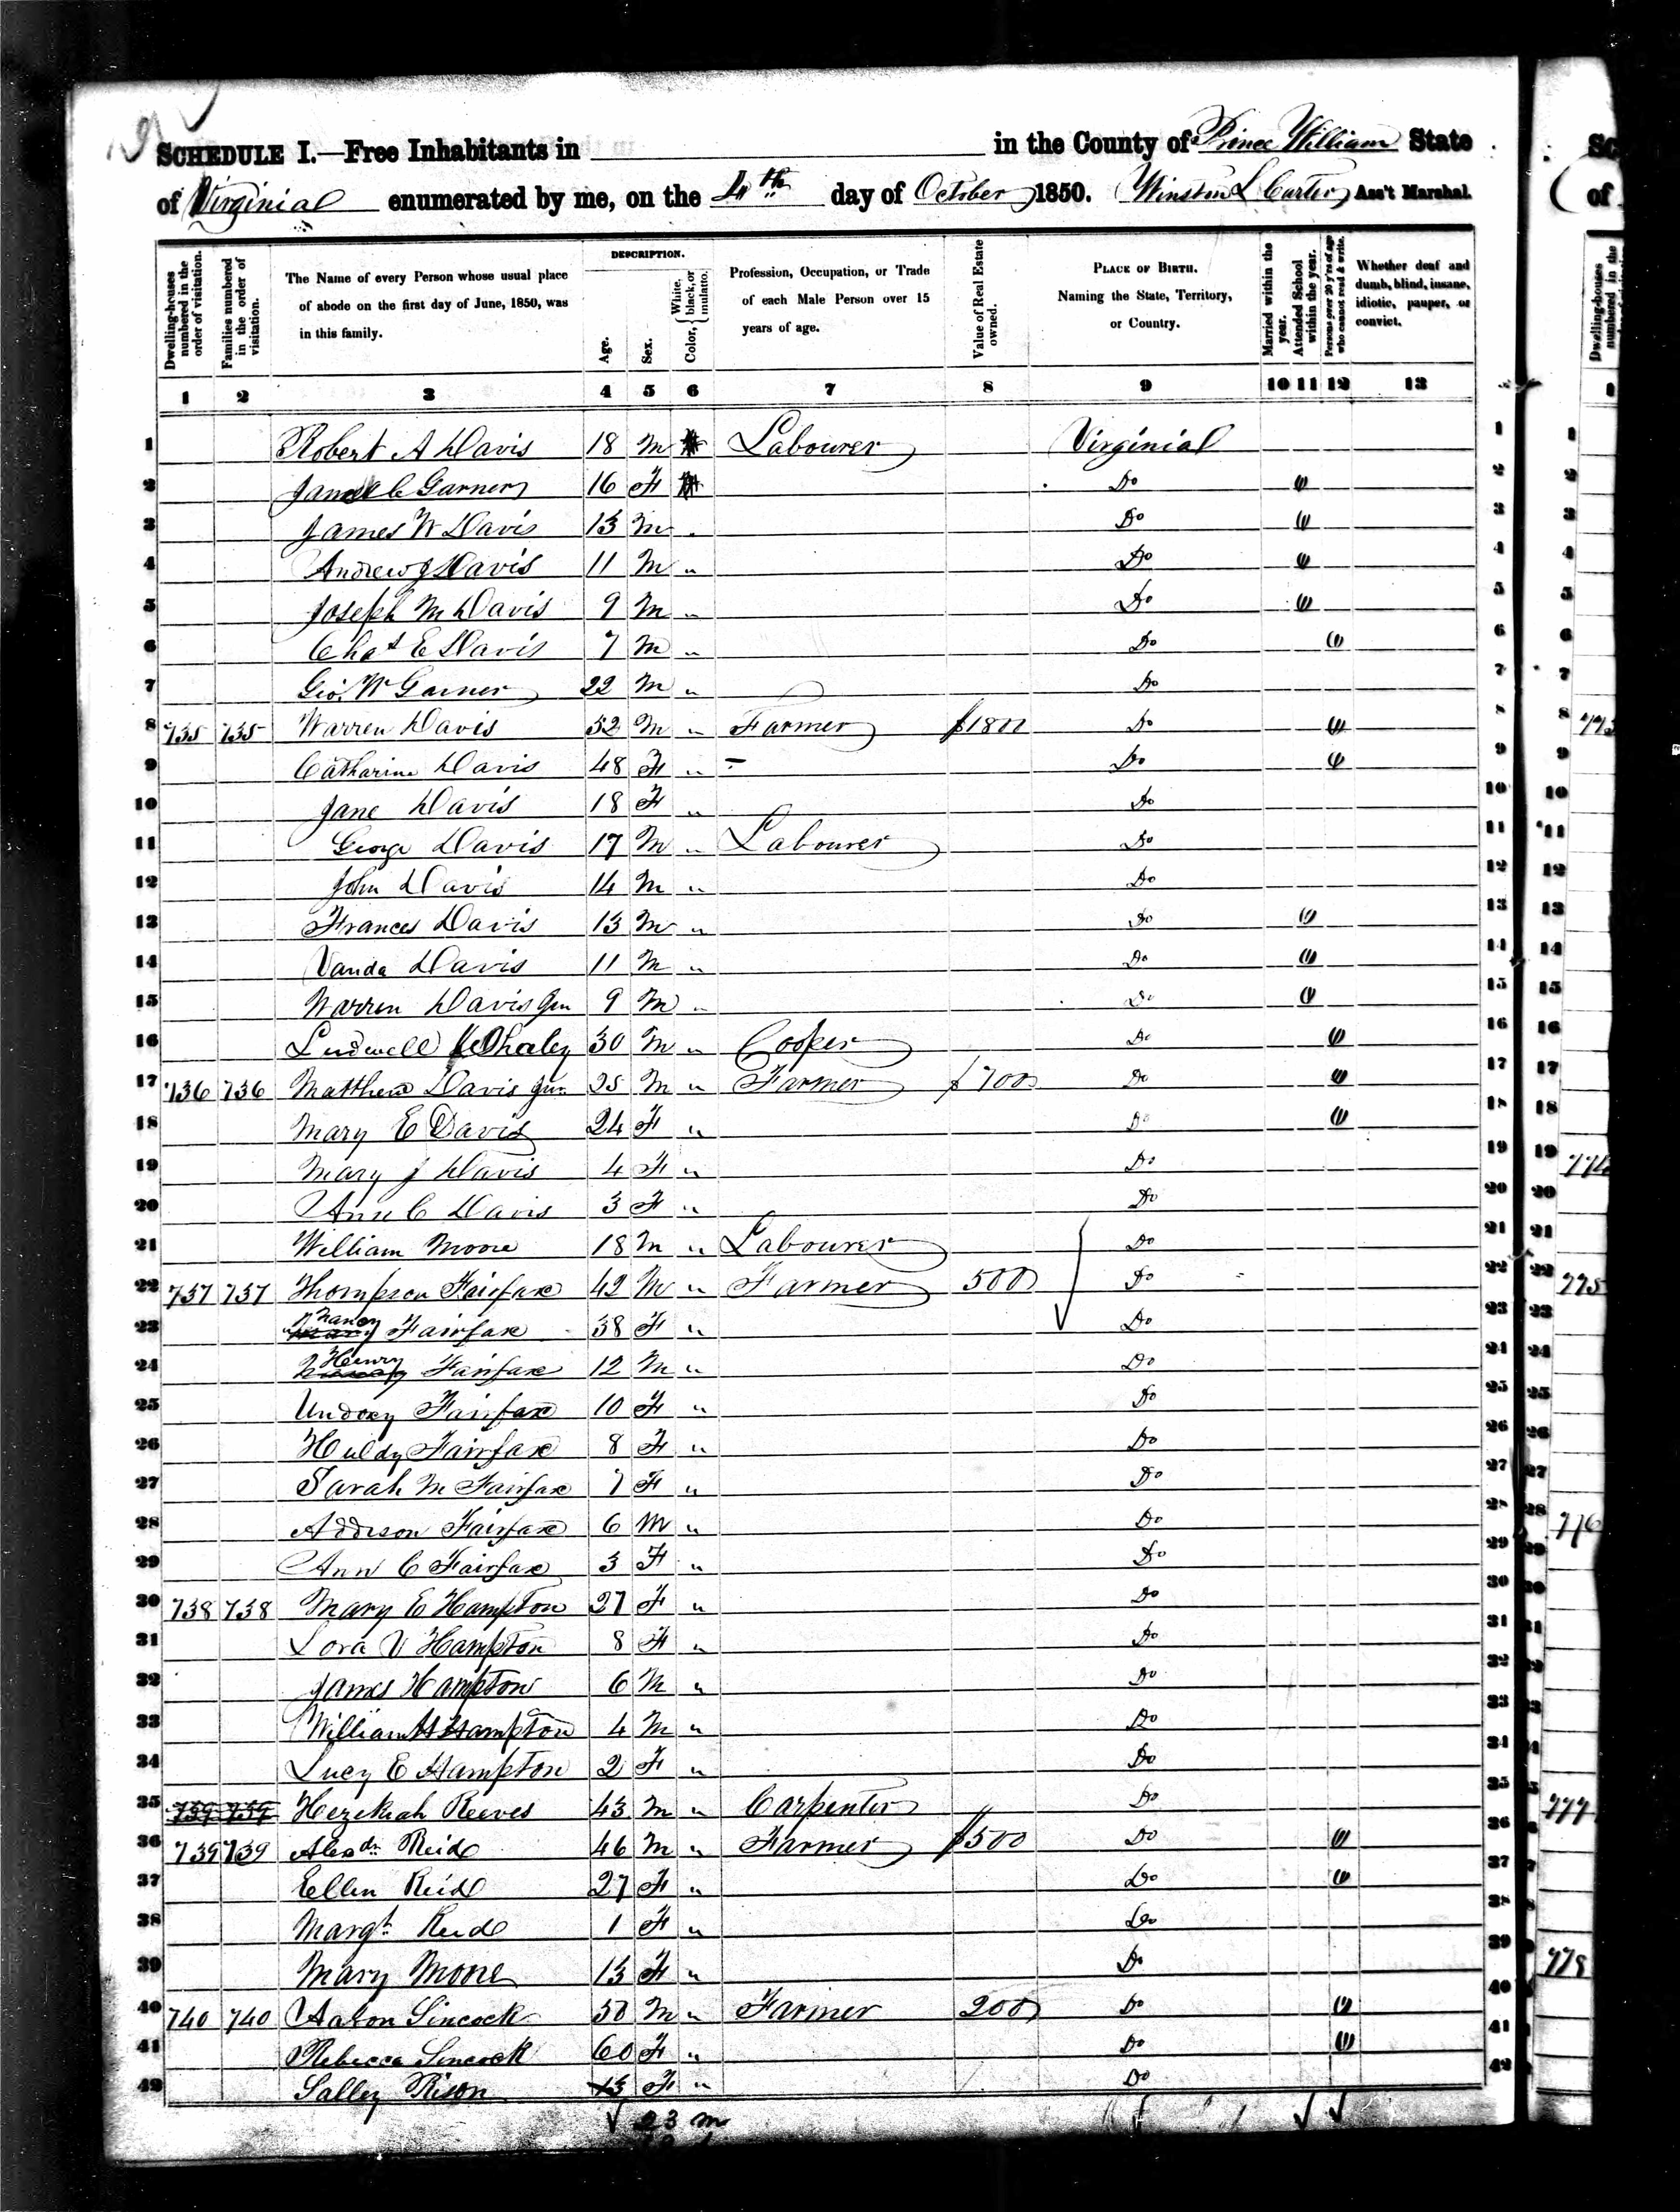 SCHEDULE I.—Free Inhabitants in in the County of Prince William State
of Virginia enumerated by me, on the 4th day of October 1850. Winston L Carter Ass't Marshal.
Dwelling-houses numbered in the order of visitation.
Families numbered in the order of visitation.
The Name of every Person whose usual place of abode on the first day of June, 1850, was in this family.
DESCRIPTION.
Age.
Sex.
Color, White, black, or mulatto.
Profession, Occupation, or Trade of each Male Person over 15 years of age.
Value of Real Estate owned.
PLACE OF BIRTH. Naming the State, Territory, or Country.
Married within the year.
Attended School within the year.
Persons over 20 y'rs of age who cannot read & write.
Whether deaf and dumb, blind, insane, idiotic, pauper, or convict.
1 2 3 4 5 6 7 8 9 10 11 12 13
1 Robert A Davis 18 M Labourer Virginia 1
2 C Garner 16 F Do 1 2
3 James W Davis 13 M Do 1 3
4 Andrew J Davis 11 M " Do 1 4
5 Joseph M Davis 9 M " Do 1 5
6 Chas E Davis 7 M " Do 1 6
7 Geo. W Garner 22 M " Do 7
8 735 735 Warren Davis 52 M " Farmer $1800 Do 1 8
9 Catharine Davis 48 F " Do 1 9
10 Jane Davis 18 F " Do 10
11 George Davis 17 M " Labourer Do 11
12 John Davis 14 M " Do 12
13 Frances Davis 13 M " Do 1 13
14 Vanda Davis 11 M " Do 1 14
15 Warren Davis Jun 9 M " Do 1 15
16 Ludwell Whaley 30 M " Cooper Do 1 16
17 736 736 Matthew Davis Jun. 25 M " Farmer $700 Do 1 17
18 Mary E Davis 24 F " Do 1 18
19 Mary J Davis 4 F " Do 19
20 Ann C Davis 3 F " Do 20
21 William Moore 18 M " Labourer Do 21
22 737 737 Thompson Fairfax 42 M " Farmer 500 Do 22
23 Nancy Fairfax 38 F " Do 23
24 Henry Fairfax 12 M " Do 24
25 Fairfax 10 F " Do 25
26 Huldy Fairfax 8 F " Do 26
27 Sarah M Fairfax 7 F " Do 27
28 Addison Fairfax 6 M " Do 28
29 Ann C Fairfax 3 F " Do 29
30 738 738 Mary E Hampton 27 F " Do 30
31 Lora V Hampton 8 F " Do 31
32 James Hampton 6 M " Do 32
33 William H Hampton 4 M " Do 33
34 Lucy E Hampton 2 F " Do 34
35 739 739 Hezekiah Reeves 43 M " Carpenter Do 35
36 739 739 Alexdr Reid 46 M " Farmer $500 Do 1 36
37 Ellen Reid 27 F " Do 1 37
38 Margt. Reid 1 F " Do 38
39 Mary Moore 13 F " Do 39
40 740 740 Aaron Sincock 50 M " Farmer 200 Do 1 40
41 Rebecca Sincock 60 F " Do 1 41
42 Salley Rison 13 F " Do 42
23 m